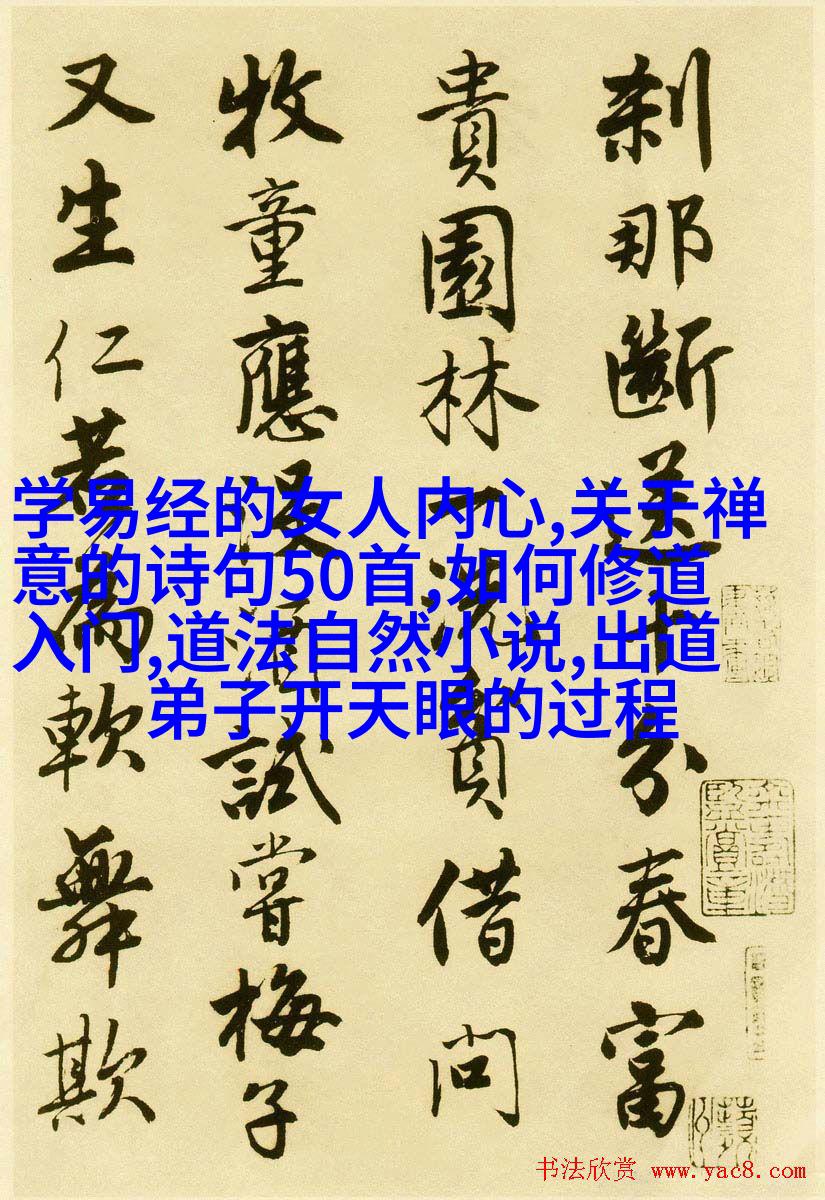 刹那斷送十分春富
貴園林一洗貧借問
牧童應没酒試嘗梅子
又生仁若為軟舞欺
学易经的女人内心,关于禅
意的诗句50首,如何修道
入门,道法自然小说,出道
弟子开天眼的过程
书法欣赏 www.yac8.com